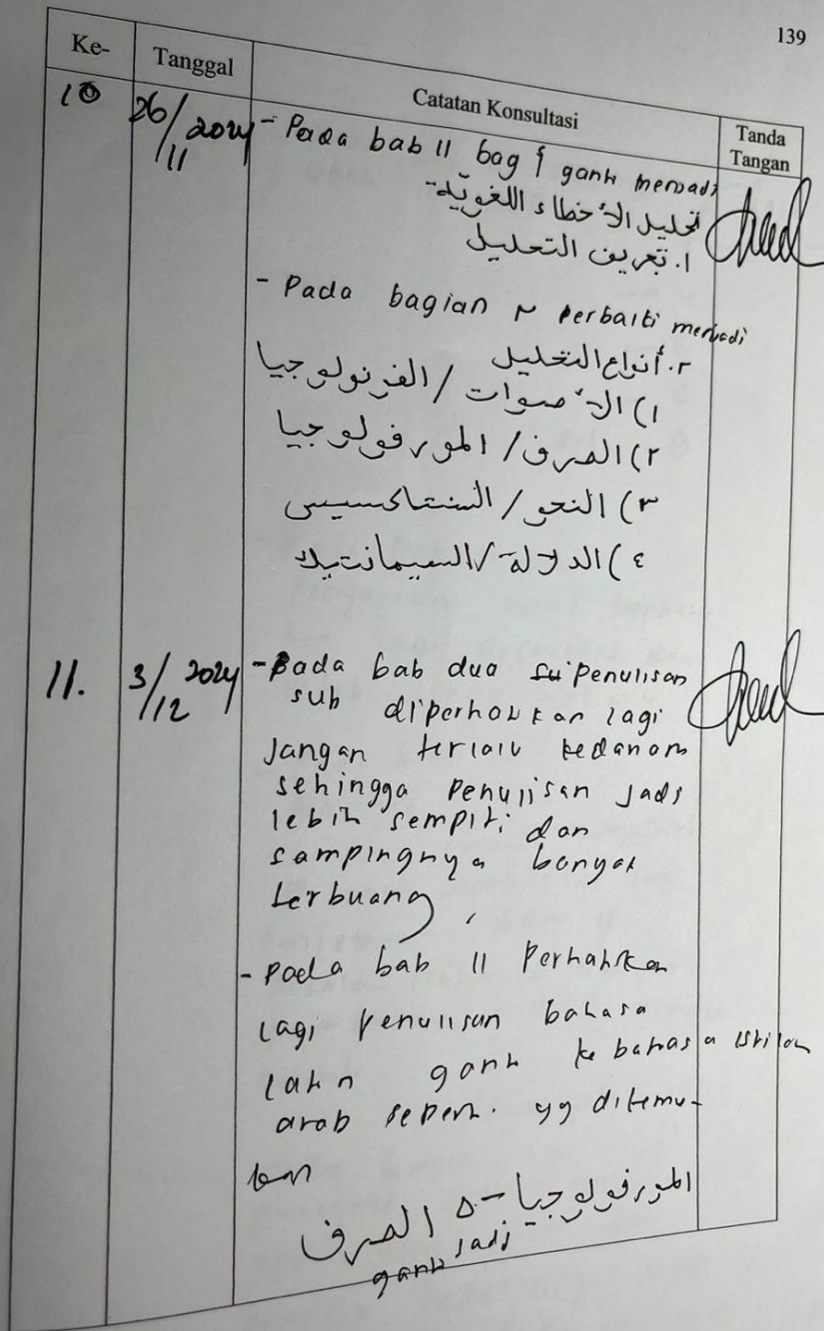 139
Ke- Tanggal Catatan Konsultasi Tanda Tangan
10 26/11 2024 - Pada bab II bag ganti menjadi
تحليل الأخطاء اللغويّة.
١. تعريف التحليل
- Pada bagian ٢ perbaiki menjadi
٢. أنواع التحليل
١) الأصوات / الفونولوجيا
٢) الصرف / المورفولوجيا
٣) النحو / السنتاكسيس
٤) الدلالة / السيمانتيك
11. 3/12 2024 - Pada bab dua penulisan
sub diperhatikan lagi
Jangan terlalu kedalam
sehingga penulisan jadi
lebih sempit dan
sampingnya banyak
terbuang,
- Pada bab II Perhatikan
lagi penulisan bahasa
latin ganti ke bahasa istilah
arab seperti yg ditemu-
kan
المورفولوجيا -> الصرف
ganti jadi